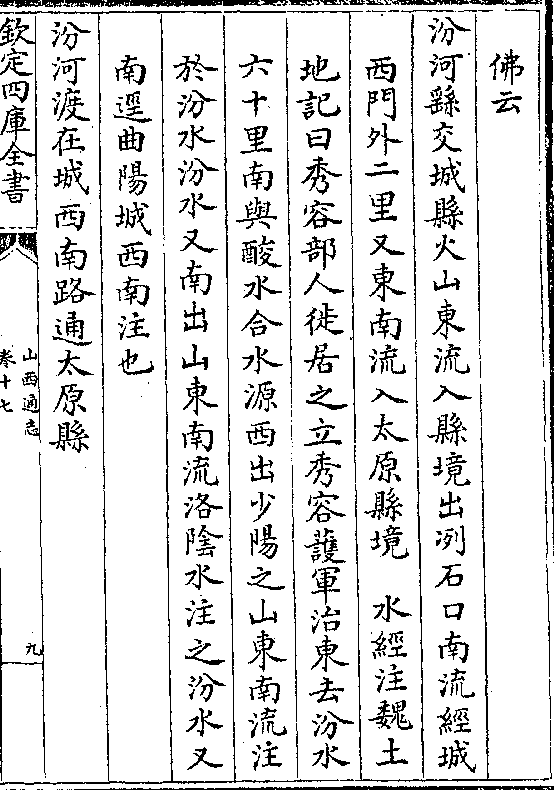 佛云
汾河繇交城縣火山東流入縣境出冽石口南流經城
西門外二里又東南流入太原縣境　水經注魏土
地記曰秀容部人徙居之立秀容護軍治東去汾水
六十里南與酸水合水源西出少陽之山東南流注
於汾水汾水又南出山東南流洛陰水注之汾水又
南逕曲陽城西南注也
汾河渡在城西南路通太原縣
欽定四庫全書
山西通志
卷十七
九